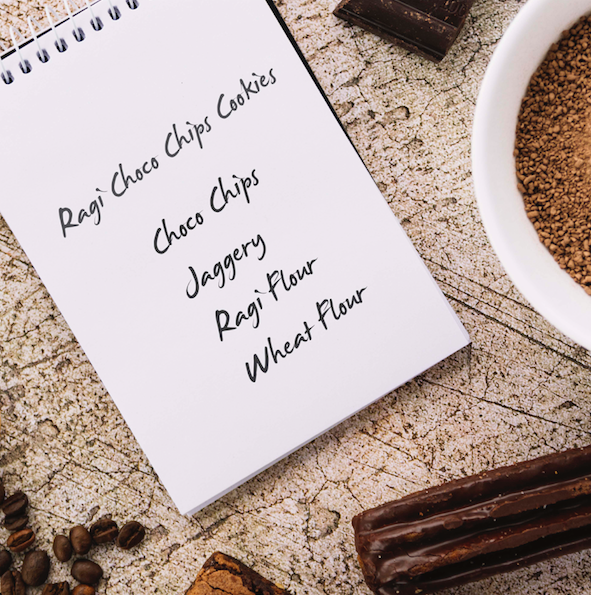 Ragi Choco Chips Cookies
Choco Chips
Jaggery
Ragi Flour
Wheat Flour